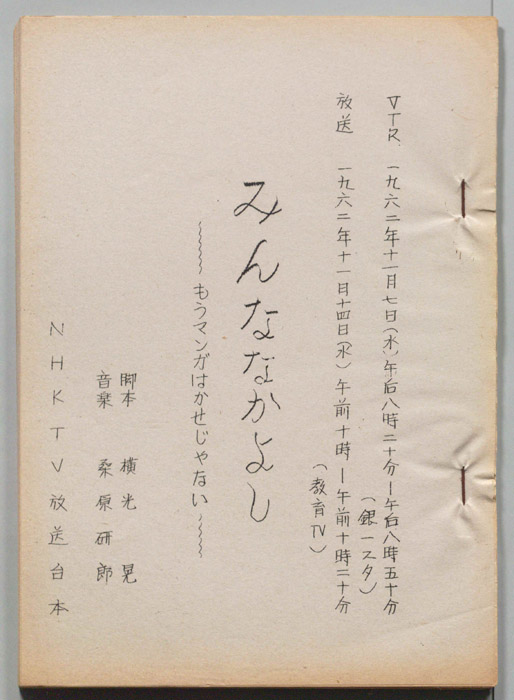 VTR 一九六二年十一月七日(水)午后八時二十分ー午后八時五十分
(銀一スタ)
放送 一九六二年十一月十四日(水)午前十時ー午前十時二十分
(教育TV)
みんななかよし
もうマンガはかせじゃない
脚本 横光 晃
音楽 桑原研郎
NHKTV放送台本